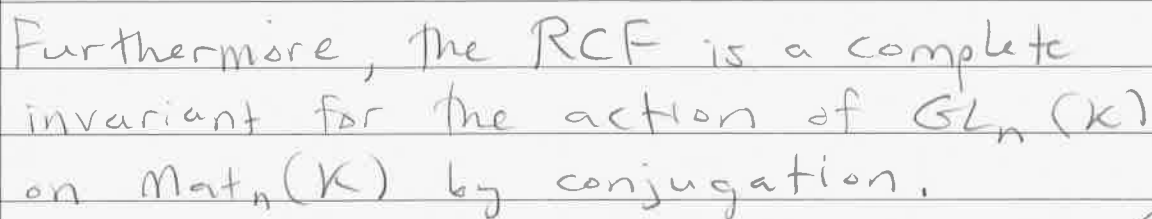 Furthermore, the RCF is a complete
invariant for the action of GLₙ(K)
on Matₙ(K) by conjugation.